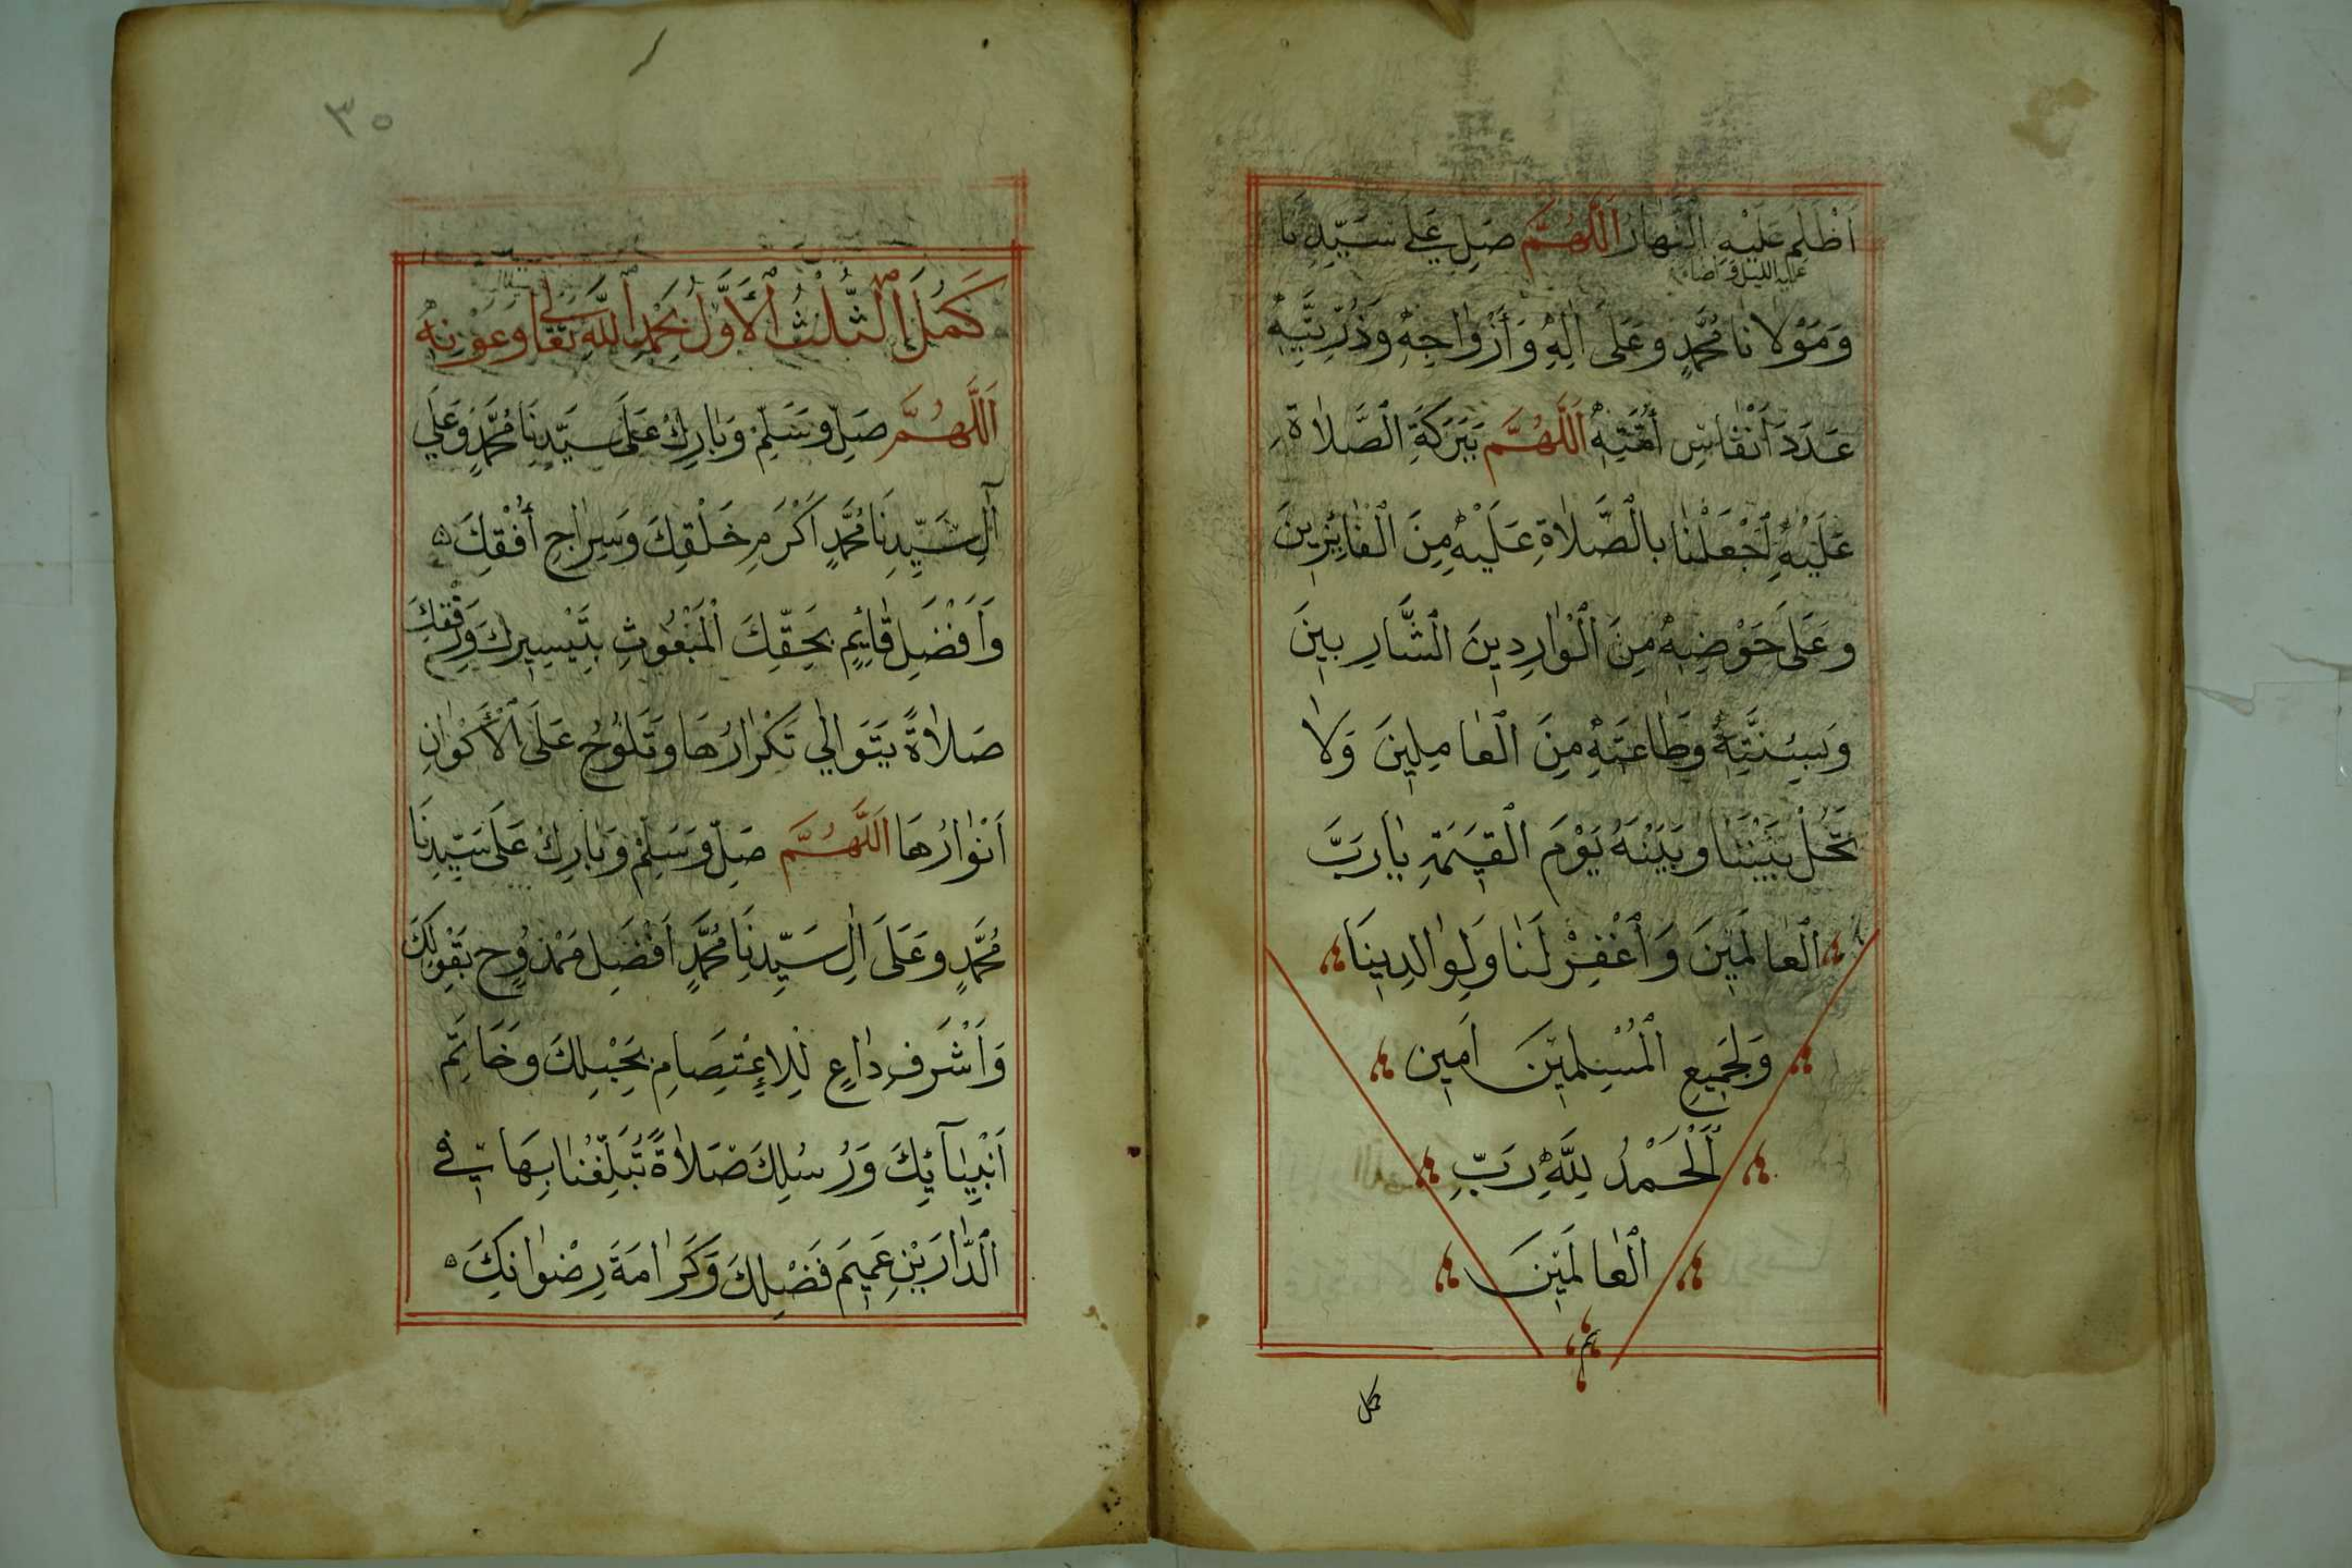 اَظْلَمَ عَلَيْهِ النَّهَارُ اَللّٰهُمَّ صَلِّ عَلَى سَيِّدِنَا
عليه الليل واضاء
وَمَوْلَانَا مُحَمَّدٍ وَعَلَى اٰلِهِ وَأَزْوَاجِهِ وَذُرِّيَّتِهِ
عَدَدَ أَنْفَاسِ أُمَّتِهِ اَللّٰهُمَّ بِبَرَكَةِ الصَّلَاةِ
عَلَيْهِ اجْعَلْنَا بِالصَّلَاةِ عَلَيْهِ مِنَ الْفَائِزِينَ
وَعَلَى حَوْضِهِ مِنَ الْوَارِدِينَ الشَّارِبِينَ
وَبِسُنَّتِهِ وَطَاعَتِهِ مِنَ الْعَامِلِينَ وَلَا
تَحُلْ بَيْنَنَا وَبَيْنَهُ يَوْمَ الْقِيٰمَةِ يَارَبَّ
الْعَالَمِينَ وَاغْفِرْ لَنَا وَلِوَالِدِينَا
وَلِجَمِيعِ الْمُسْلِمِينَ اٰمِينَ
اَلْحَمْدُ لِلّٰهِ رَبِّ
الْعَالَمِينَ
كمل
٣٥
كَمُلَ الثُّلُثُ الْأَوَّلُ بِحَمْدِ اللهِ تَعَالَى وَعَوْنِهِ
اَللّٰهُمَّ صَلِّ وَسَلِّمْ وَبَارِكْ عَلَى سَيِّدِنَا مُحَمَّدٍ وَعَلَى
اٰلِ سَيِّدِنَا مُحَمَّدٍ اَكْرَمِ خَلْقِكَ وَسِرَاجِ أُفُقِكَ
وَاَفْضَلِ قَائِمٍ بِحَقِّكَ الْمَبْعُوثِ بِتَيْسِيرِكَ وَرِفْقِكَ
صَلَاةً يَتَوَالَي تَكْرَارُهَا وَتَلُوحُ عَلَى الْأَكْوَانِ
اَنْوَارُهَا اَللّٰهُمَّ صَلِّ وَسَلِّمْ وَبَارِكْ عَلَى سَيِّدِنَا
مُحَمَّدٍ وَعَلَى اٰلِ سَيِّدِنَا مُحَمَّدٍ اَفْضَلِ مَمْدُوحٍ بِقَوْلِكَ
وَاَشْرَفِ دَاعٍ لِلْاِعْتِصَامِ بِحَبْلِكَ وَخَاتِمِ
اَنْبِيَآئِكَ وَرُسُلِكَ صَلَاةً تُبَلِّغُنَا بِهَا فِي
الدَّارَيْنِ عَمِيمَ فَضْلِكَ وَكَرَامَةَ رِضْوَانِكَ